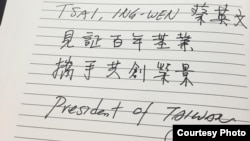 TSAI, ING-WEN 蔡英文
見証百年基業
携手共創榮景
President of TAIWAN
Courtesy Photo